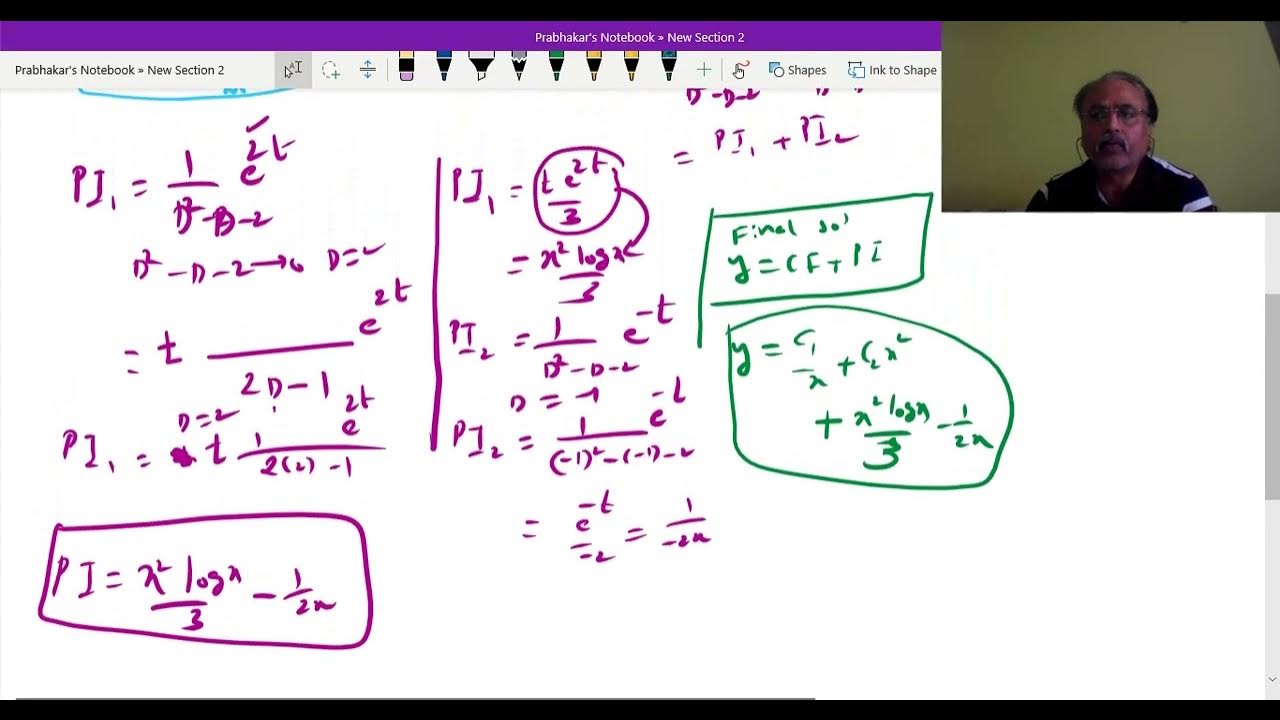 Prabhakar's Notebook » New Section 2
Prabhakar's Notebook » New Section 2
Shapes
Ink to Shape
PI₁ = 1/(D²-D-2) e^2t
D² - D - 2 → 0 D = 2
= t e^2t/(2D - 1)
D = 2
PI₁ = t 1/(2(2) - 1) e^2t
PI = x² log x/3 - 1/2x
PI₁ = t e^2t/3
= x² log x/3
PI₂ = 1/(D² - D - 2) e^-t
D = -1
PI₂ = 1/((-1)² - (-1) - 2) e^-t
= e^-t/-2 = 1/-2x
= PI₁ + PI₂
Final sol
y = CF + PI
y = C₁/x + C₂x²
+ x² log x/3 - 1/2x